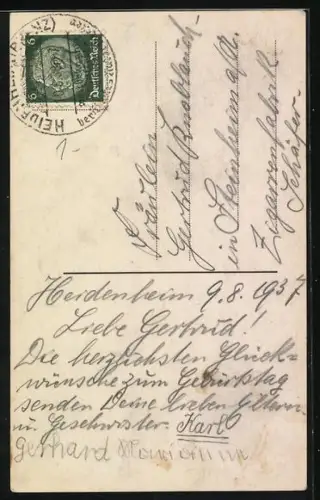 HEIDENHEIM (BRENZ)
6 Deutsches Reich 6
1-
Fräulein
Gertrud Knoblauch
in Steinheim a/A.
Zigarrenfabrik
Schäfer.
Heidenheim 9.8.1937
Liebe Gertrud!
Die herzlichsten Glück-
wünsche zum Geburtstag
senden Deine lieben Eltern
u. Geschwister Karl
Gerhard Marianne